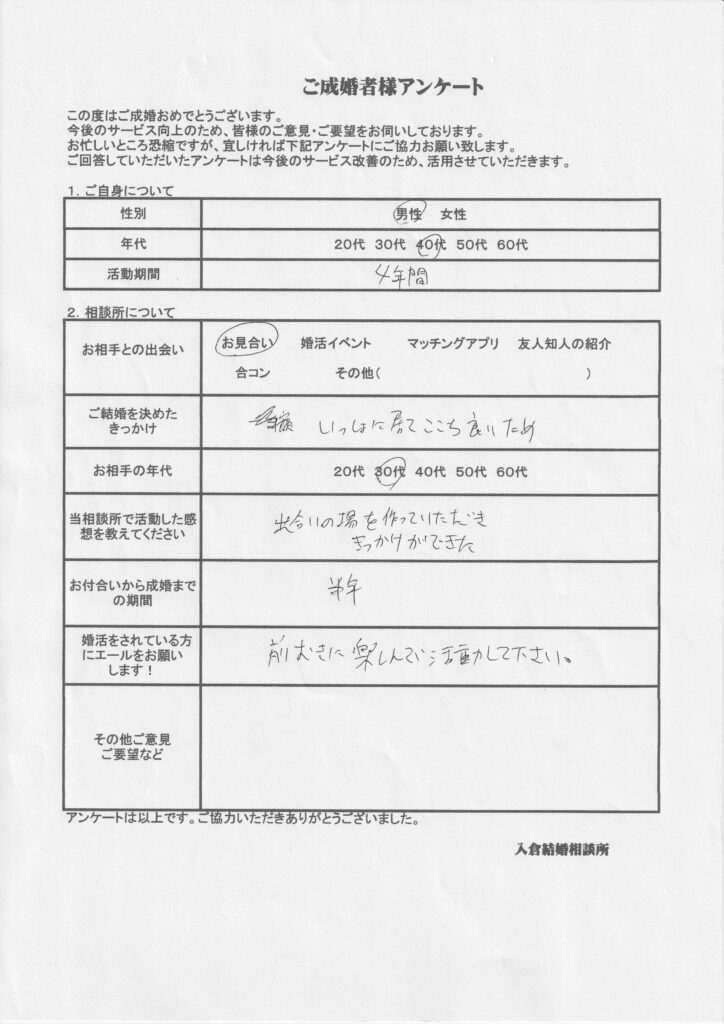 ご成婚者様アンケート
この度はご成婚おめでとうございます。
今後のサービス向上のため、皆様のご意見・ご要望をお伺いしております。
お忙しいところ恐縮ですが、宜しければ下記アンケートにご協力お願い致します。
ご回答していただいたアンケートは今後のサービス改善のため、活用させていただきます。
1. ご自身について
性別 男性 女性
年代 20代 30代 40代 50代 60代
活動期間 4年間
2. 相談所について
お相手との出会い お見合い 婚活イベント マッチングアプリ 友人知人の紹介
合コン その他( )
ご結婚を決めた
きっかけ いっしょに居てここち良いため
お相手の年代 20代 30代 40代 50代 60代
当相談所で活動した感
想を教えてください 出合いの場を作っていただき
きっかけができた
お付合いから成婚まで
の期間 半年
婚活をされている方
にエールをお願い
します! 前むきに楽しんで活動して下さい。
その他ご意見
ご要望など
アンケートは以上です。ご協力いただきありがとうございました。
入倉結婚相談所